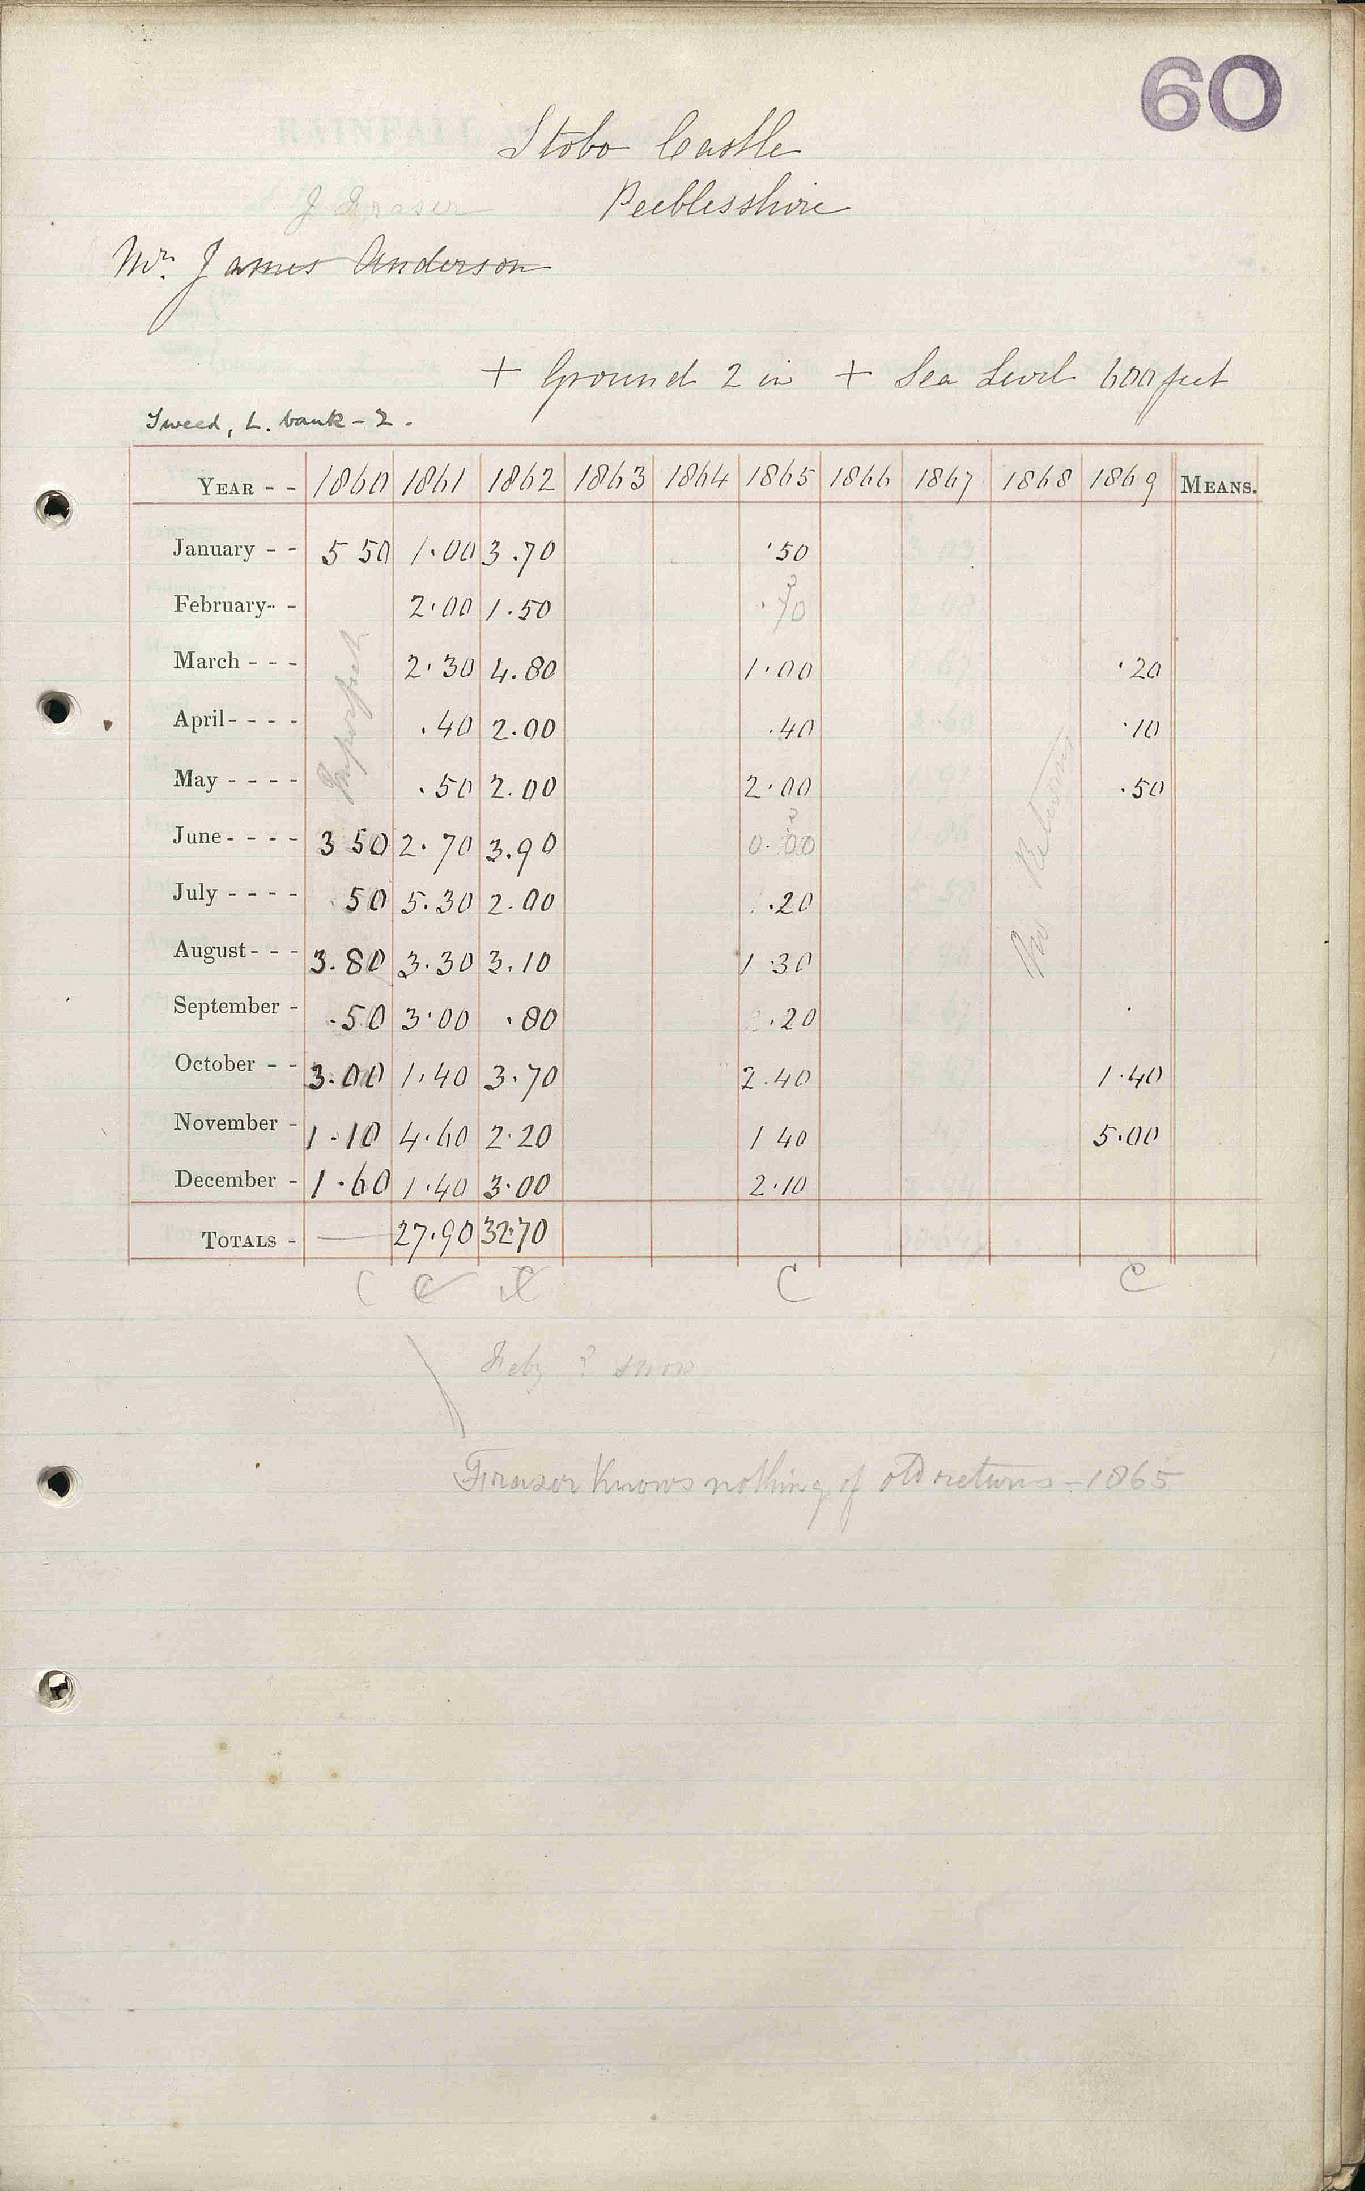 60
Stobo Castle
J Fraser Peeblesshire
Mr. James Anderson
+ Ground 2 in + Sea Level 600 feet
Tweed, L. bank - 2.
YEAR - - 1860 1861 1862 1863 1864 1865 1866 1867 1868 1869 MEANS.
January - - 5 50 1.00 3.70 .50
February- - 2.00 1.50 .70 ?
March - - - 2.30 4.80 1.00 .20
April- - - - .40 2.00 .40 .10
May - - - - .50 2.00 2.00 .50
June- - - - 3 50 2.70 3.90 0.00 ?
July - - - - .50 5.30 2.00 .20
August- - - 3.80 3.30 3.10 1 30
September - .50 3.00 .80 .20
October - - 3.00 1.40 3.70 2.40 1.40
November - 1.10 4.60 2.20 1 40 5.00
December - 1.60 1.40 3.00 2.10
Imperfect
No Returns
TOTALS - — 27.90 32.70
C C C C C
Feby ? snow
Fraser knows nothing of old returns - 1865